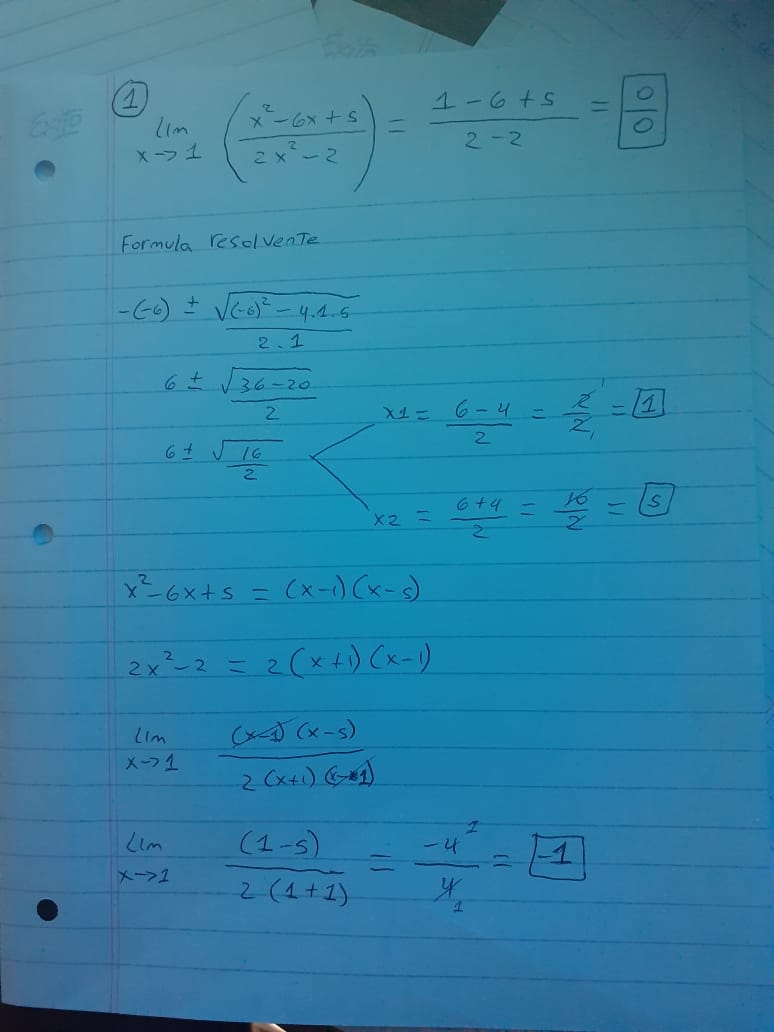 1
lim x->1 (x²-6x+5 / 2x²-2) = 1-6+5 / 2-2 = 0/0
Formula resolvente
-(-6) ± √(-6)²-4.1.5 / 2.1
6 ± √36-20 / 2
x1 = 6-4 / 2 = 2/2 = 1
6 ± √16 / 2
x2 = 6+4 / 2 = 10/2 = 5
x²-6x+5 = (x-1)(x-5)
2x²-2 = 2(x+1)(x-1)
Lim x->1 (x-1)(x-5) / 2(x+1)(x-1)
Lim x->1 (1-5) / 2(1+1) = -4 1 / 4 1 = -1